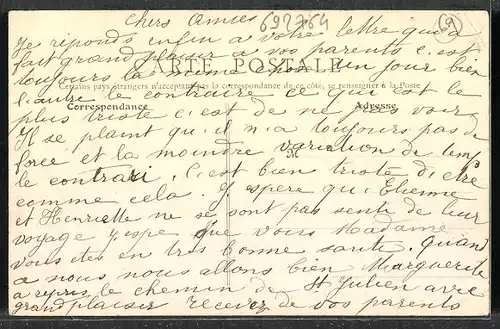 chers amies
692764
9
Je riponds enfin a votre lettre qui a
fait grand plaisir a vos parents c. est
CARTE POSTALE
toujours la meme chose un jour bien
Certains pays étrangers n'acceptant pas la correspondance de ce côté, se renseigner à la Poste
l'autre le contraire ce qui est le
Correspondance
Adresse
plus triste c'est de ne pas voir
Il se plaint qu'il n.a toujours pas de
M
force et la moindre variation de temps
le contrari C'est bien triste d'etre
comme cela J espere que Etienne
et Henriette ne se sont pas senti de leur
voyage J espe que vous Madame
vous etes en tres bonne sante. Quand
a nous nous allons bien Marguerite
a repris le chemin de St Julien avec
grand plaisir recevez de vos parents